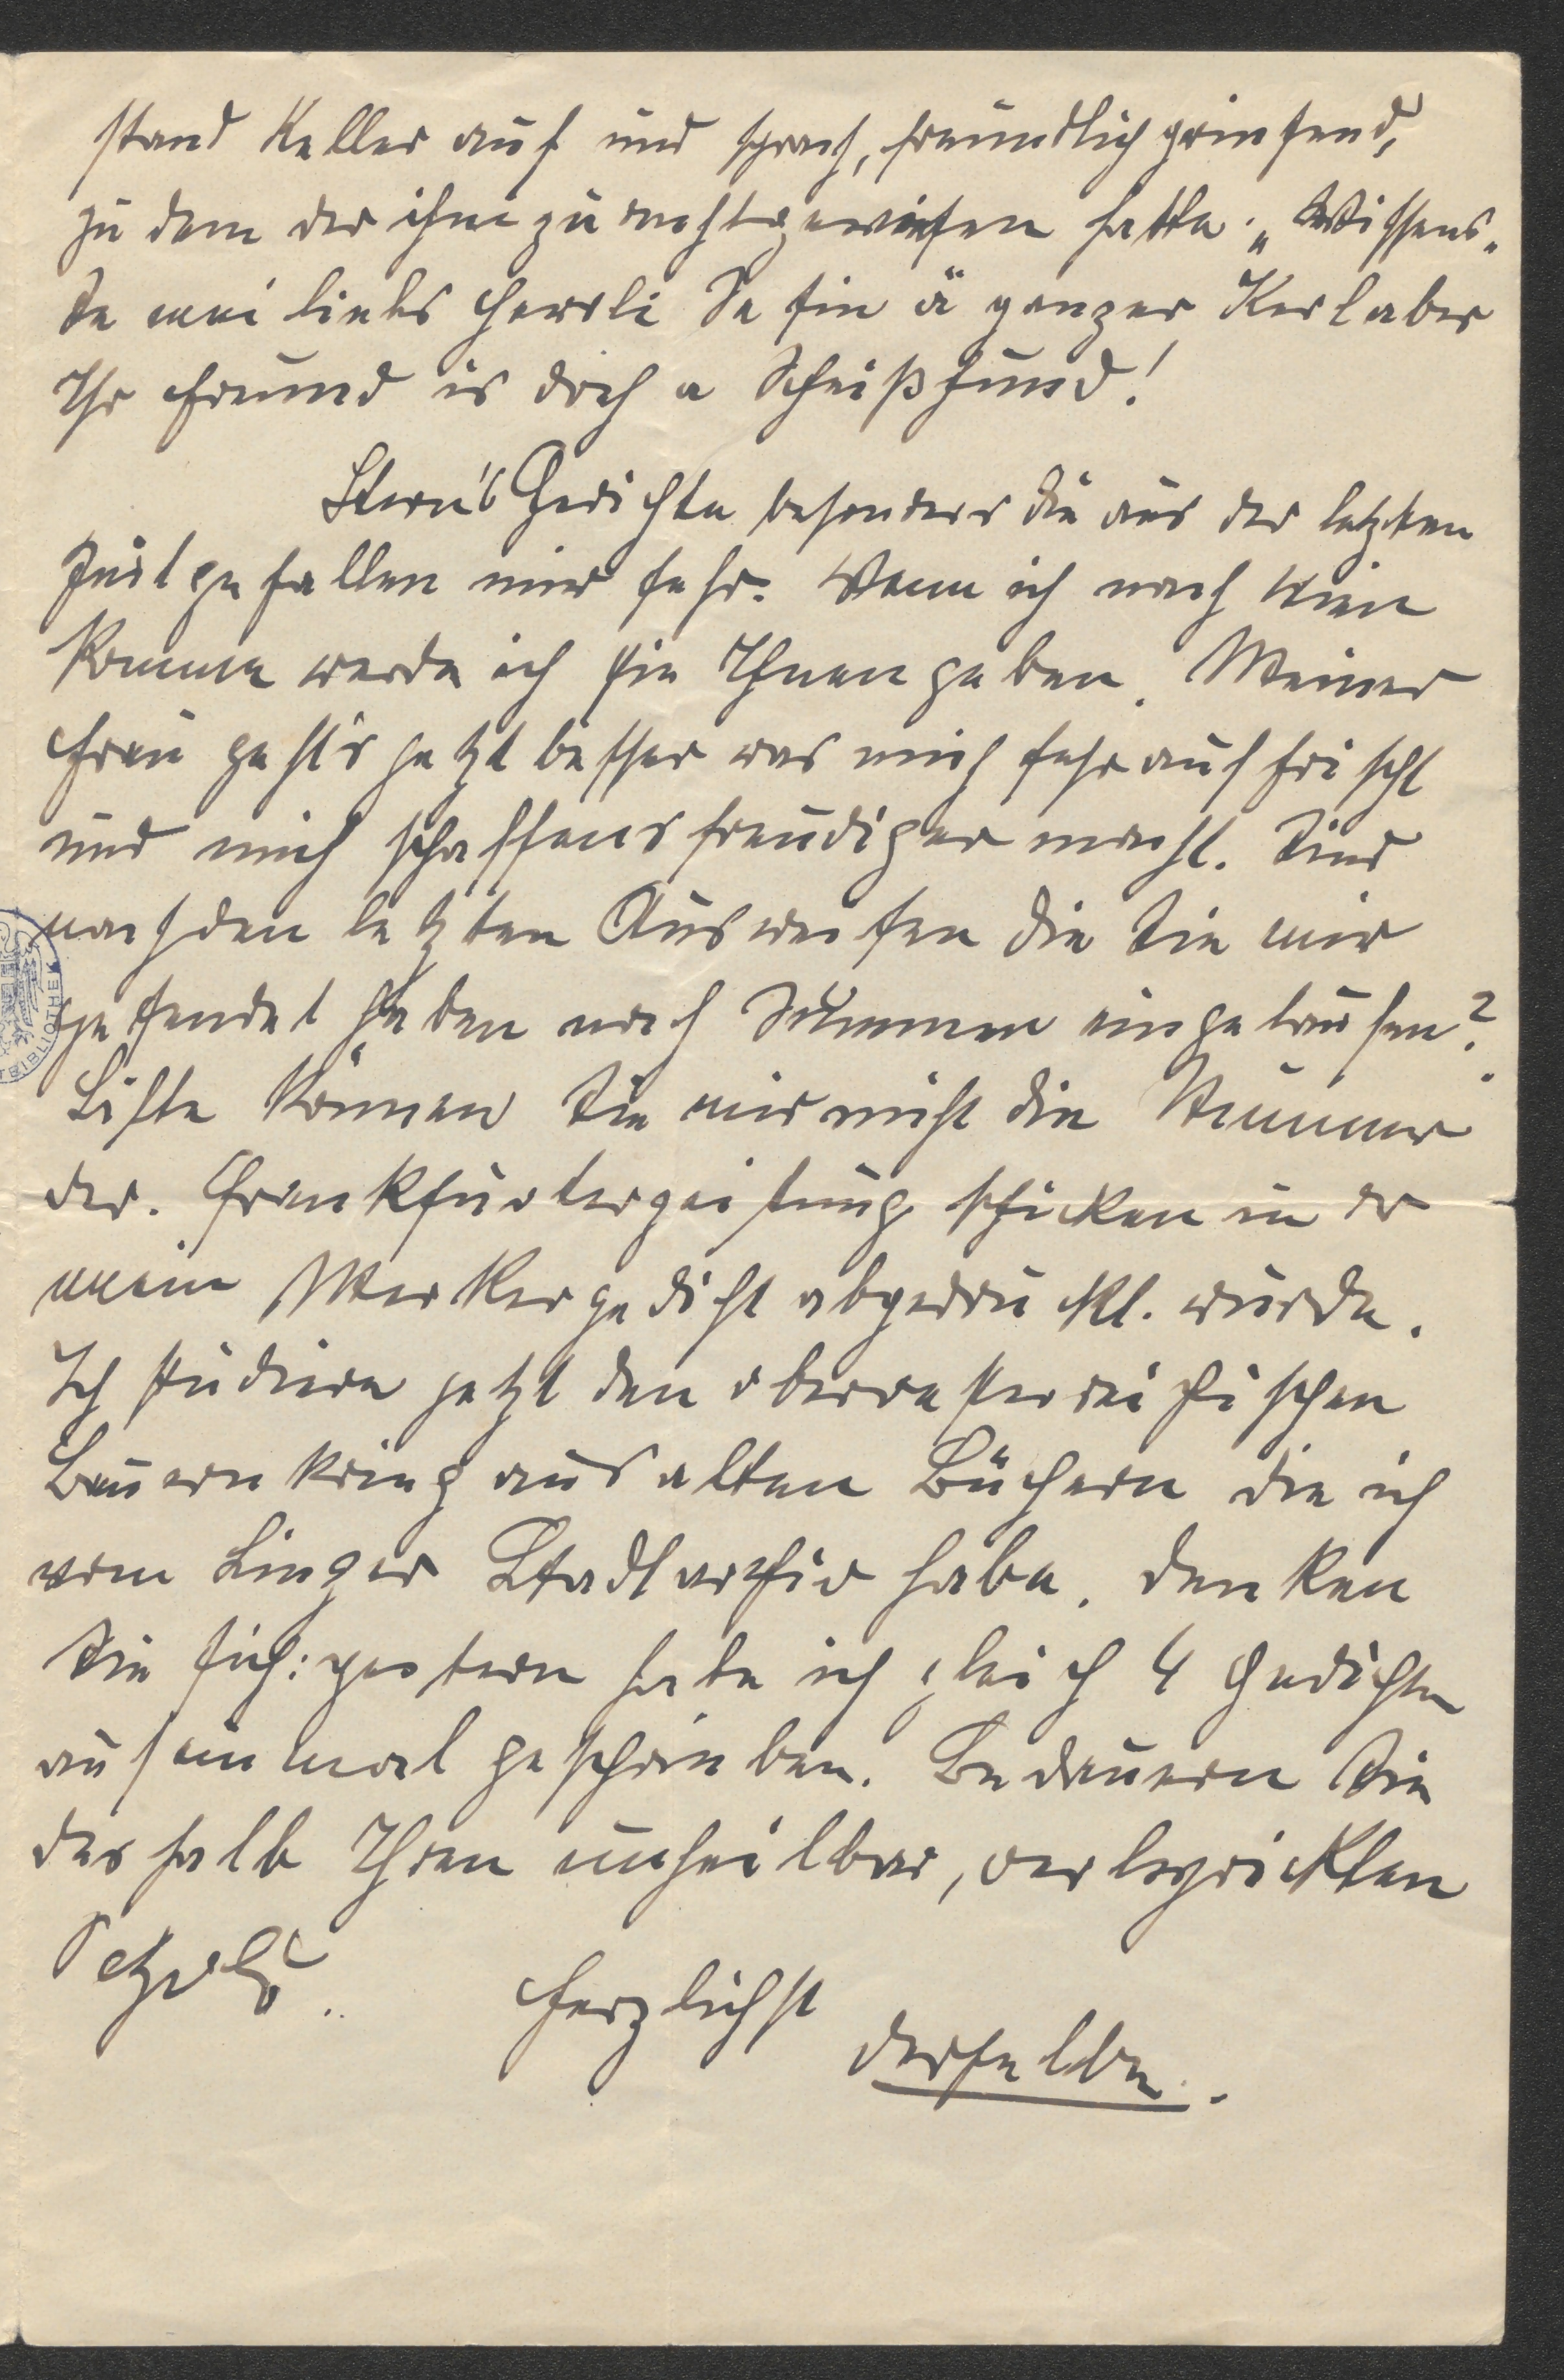 stand Keller auf und sprach, freundlich grinsend,
zu dem der ihn zurechtgewiesen hatte: „Wissens„
Se mei liebs Herrli Se sin ä ganzer Kerl aber
Ihr Freund is doch a Scheißhund!
Stern's Gedichte besonders die aus der letzten
Zeit gefallen mir sehr. Wenn ich nach Wien
komme werde ich sie Ihnen geben. Meiner
Frau geht's jetzt besser was mich sehr auffrischt
und mich schaffensfreudiger macht. Sind
nach den letzten Ausweisen die Sie mir
gesendet haben noch Summen eingelaufen?
Bitte können Sie mir nicht die Nummer
der. Frankfurterzeitung schicken in der
mein Merkergedicht abgedruckt. wurde.
Ich studiere jetzt den oberoesterreichischen
Bauernkrieg aus alten Büchern die ich
vom Linzer Stadtarchiv habe. Denken
Sie sich: gestern habe ich gleich 4 Gedichte
auf einmal geschrieben. Bedauern Sie
deshalb Ihren unheilbar, verlyrickten
Herzlichst
derselbe.
BIBLIOTHEK